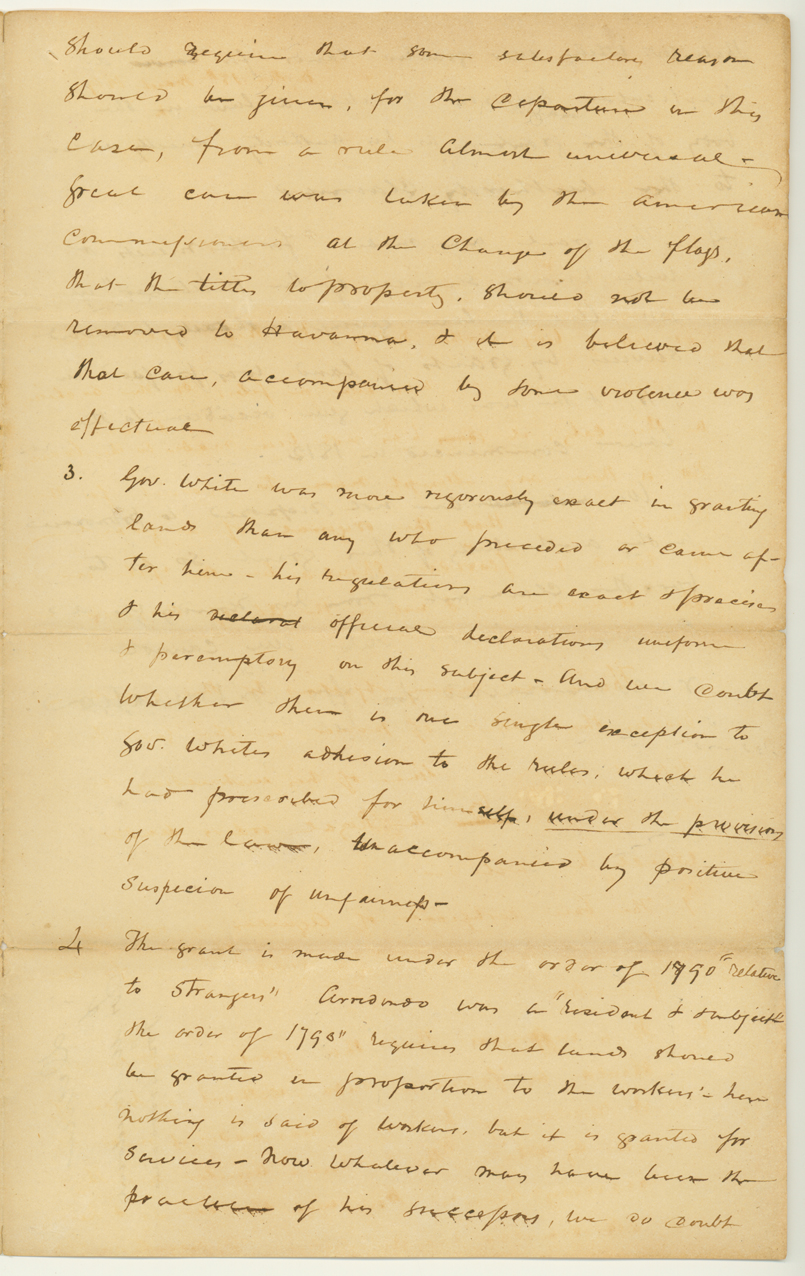 should require that some satisfactory reason
should be given, for the departure in this
case, from a rule almost universal -
great care was taken by the American
Commissioners at the Change of the flags,
that the titles to property, should not be
removed to Havanna, & it is believed that
that care, accompanied by some violence was
effectual
3. Gov. White was more rigorously exact in granting
lands than any who preceded or came af-
ter him - his regulations are exact & precise
& his official declarations uniform
& peremptory on this subject - And we doubt
whether there is one single exception to
Gov. Whites adhesion to the rules, which he
had prescribed for himself, under the provisions
of the laws, unaccompanied by positive
suspicion of unfairness -
4 The grant is made under the order of 1790 "relative
to Strangers" Arredondo was a "resident & subject"
the order of 1790" requires that lands should
be granted in proportion to the workers' - here
nothing is said of workers, but it is granted for
services - Now whatever may have been the
practice of his successors, we do doubt